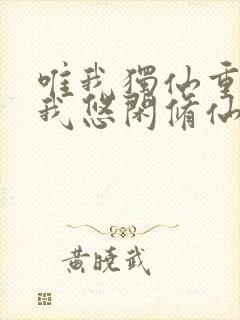 唯我獨仙重
我悠閑脩仙
黃曉武